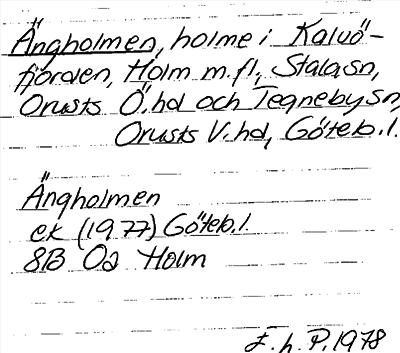 Ängholmen, holme i Kalvö-
fjorden, Holm m.fl., Stala sn,
Orusts Ö. hd och Tegneby sn,
Orusts V. hd, Göteb. l.
Ängholmen
ek (1977) Göteb. l.
8B 0a Holm
F. h. P. 1978